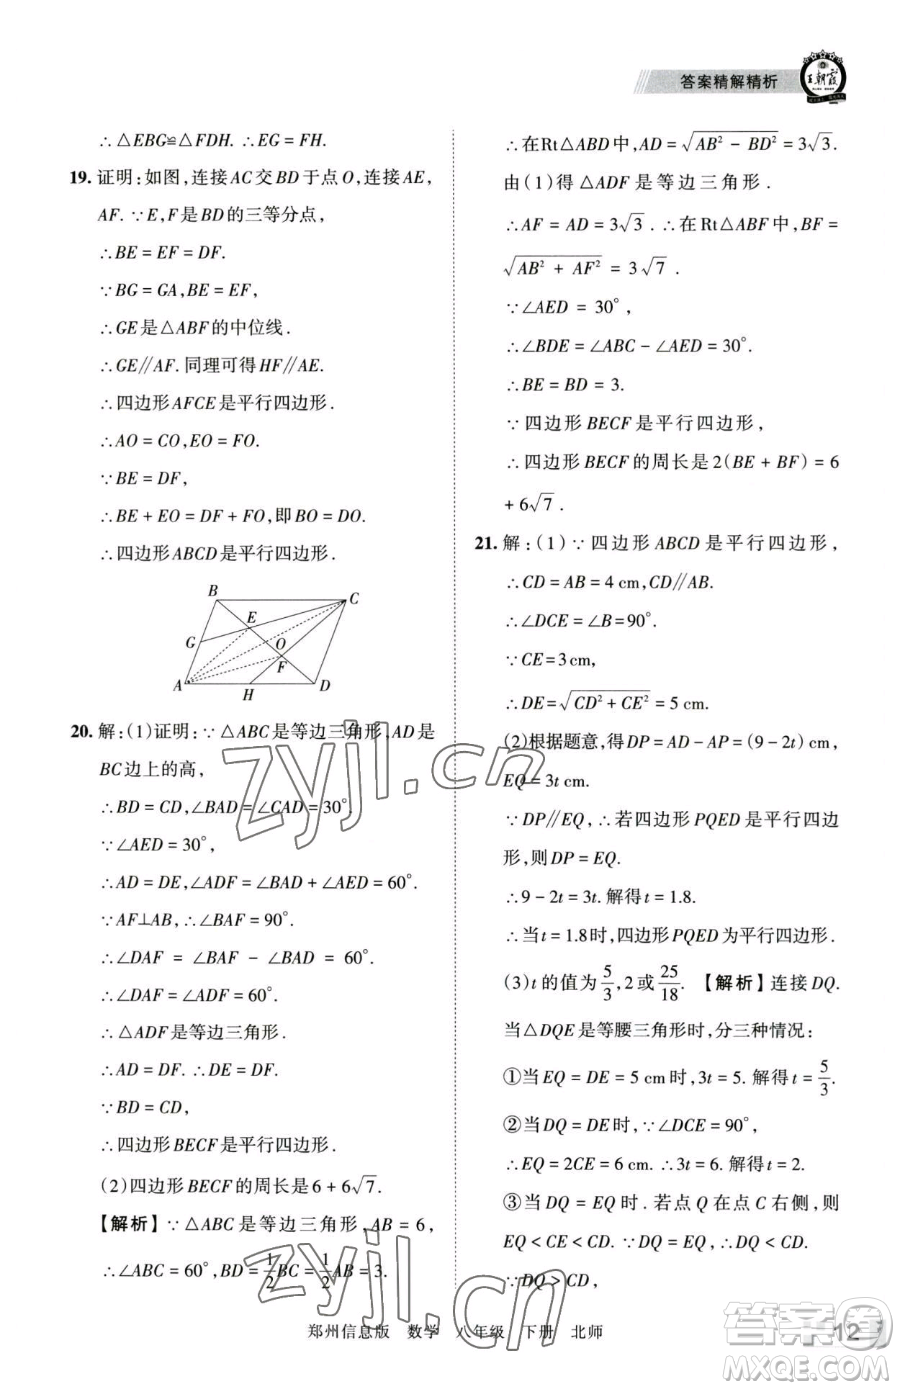 答案精解精析
王朝霞
∴△EBG≌△FDH. ∴EG = FH.
19. 证明:如图,连接AC交BD于点O,连接AE,
AF. ∵E,F是BD的三等分点,
∴BE = EF = DF.
∵BG = GA,BE = EF,
∴GE是△ABF的中位线.
∴GE∥AF. 同理可得HF∥AE.
∴四边形AFCE是平行四边形.
∴AO = CO,EO = FO.
∵BE = DF,
∴BE + EO = DF + FO,即BO = DO.
∴四边形ABCD是平行四边形.
B C
E
G O
F
A H D
20. 解:(1)证明:∵△ABC是等边三角形,AD是
BC边上的高,
∴BD = CD,∠BAD = ∠CAD = 30°.
∵∠AED = 30°,
∴AD = DE,∠ADF = ∠BAD + ∠AED = 60°.
∵AF⊥AB,∴∠BAF = 90°.
∴∠DAF = ∠BAF − ∠BAD = 60°.
∴∠DAF = ∠ADF = 60°.
∴△ADF是等边三角形.
∴AD = DF. ∴DE = DF.
∵BD = CD,
∴四边形BECF是平行四边形.
(2)四边形BECF的周长是6 + 6√7.
【解析】∵△ABC是等边三角形,AB = 6,
∴∠ABC = 60°,BD = 1/2 BC = 1/2 AB = 3.
∴在Rt△ABD中,AD = √(AB² − BD²) = 3√3.
由(1)得△ADF是等边三角形.
∴AF = AD = 3√3. ∴在Rt△ABF中,BF =
√(AB² + AF²) = 3√7.
∵∠AED = 30°,
∴∠BDE = ∠ABC − ∠AED = 30°.
∴BE = BD = 3.
∵四边形BECF是平行四边形,
∴四边形BECF的周长是2(BE + BF) = 6
+ 6√7.
21. 解:(1)∵四边形ABCD是平行四边形,
∴CD = AB = 4 cm,CD∥AB.
∴∠DCE = ∠B = 90°.
∵CE = 3 cm,
∴DE = √(CD² + CE²) = 5 cm.
(2)根据题意,得DP = AD − AP = (9 − 2t) cm,
EQ = 3t cm.
∵DP∥EQ,∴若四边形PQED是平行四边
形,则DP = EQ.
∴9 − 2t = 3t. 解得t = 1.8.
∴当t = 1.8时,四边形PQED为平行四边形.
(3)t的值为5/3,2或25/18. 【解析】连接DQ.
当△DQE是等腰三角形时,分三种情况:
①当EQ = DE = 5 cm时,3t = 5. 解得t = 5/3.
②当DQ = DE时,∵∠DCE = 90°,
∴EQ = 2CE = 6 cm. ∴3t = 6. 解得t = 2.
③当DQ = EQ时. 若点Q在点C右侧,则
EQ < CE < CD. ∵DQ = EQ,∴DQ < CD.
∵DQ > CD,
zyjl.cn
zyjl.cn
郑州信息版 数学 八年级 下册 北师
12
答案圈
MXQE.COM